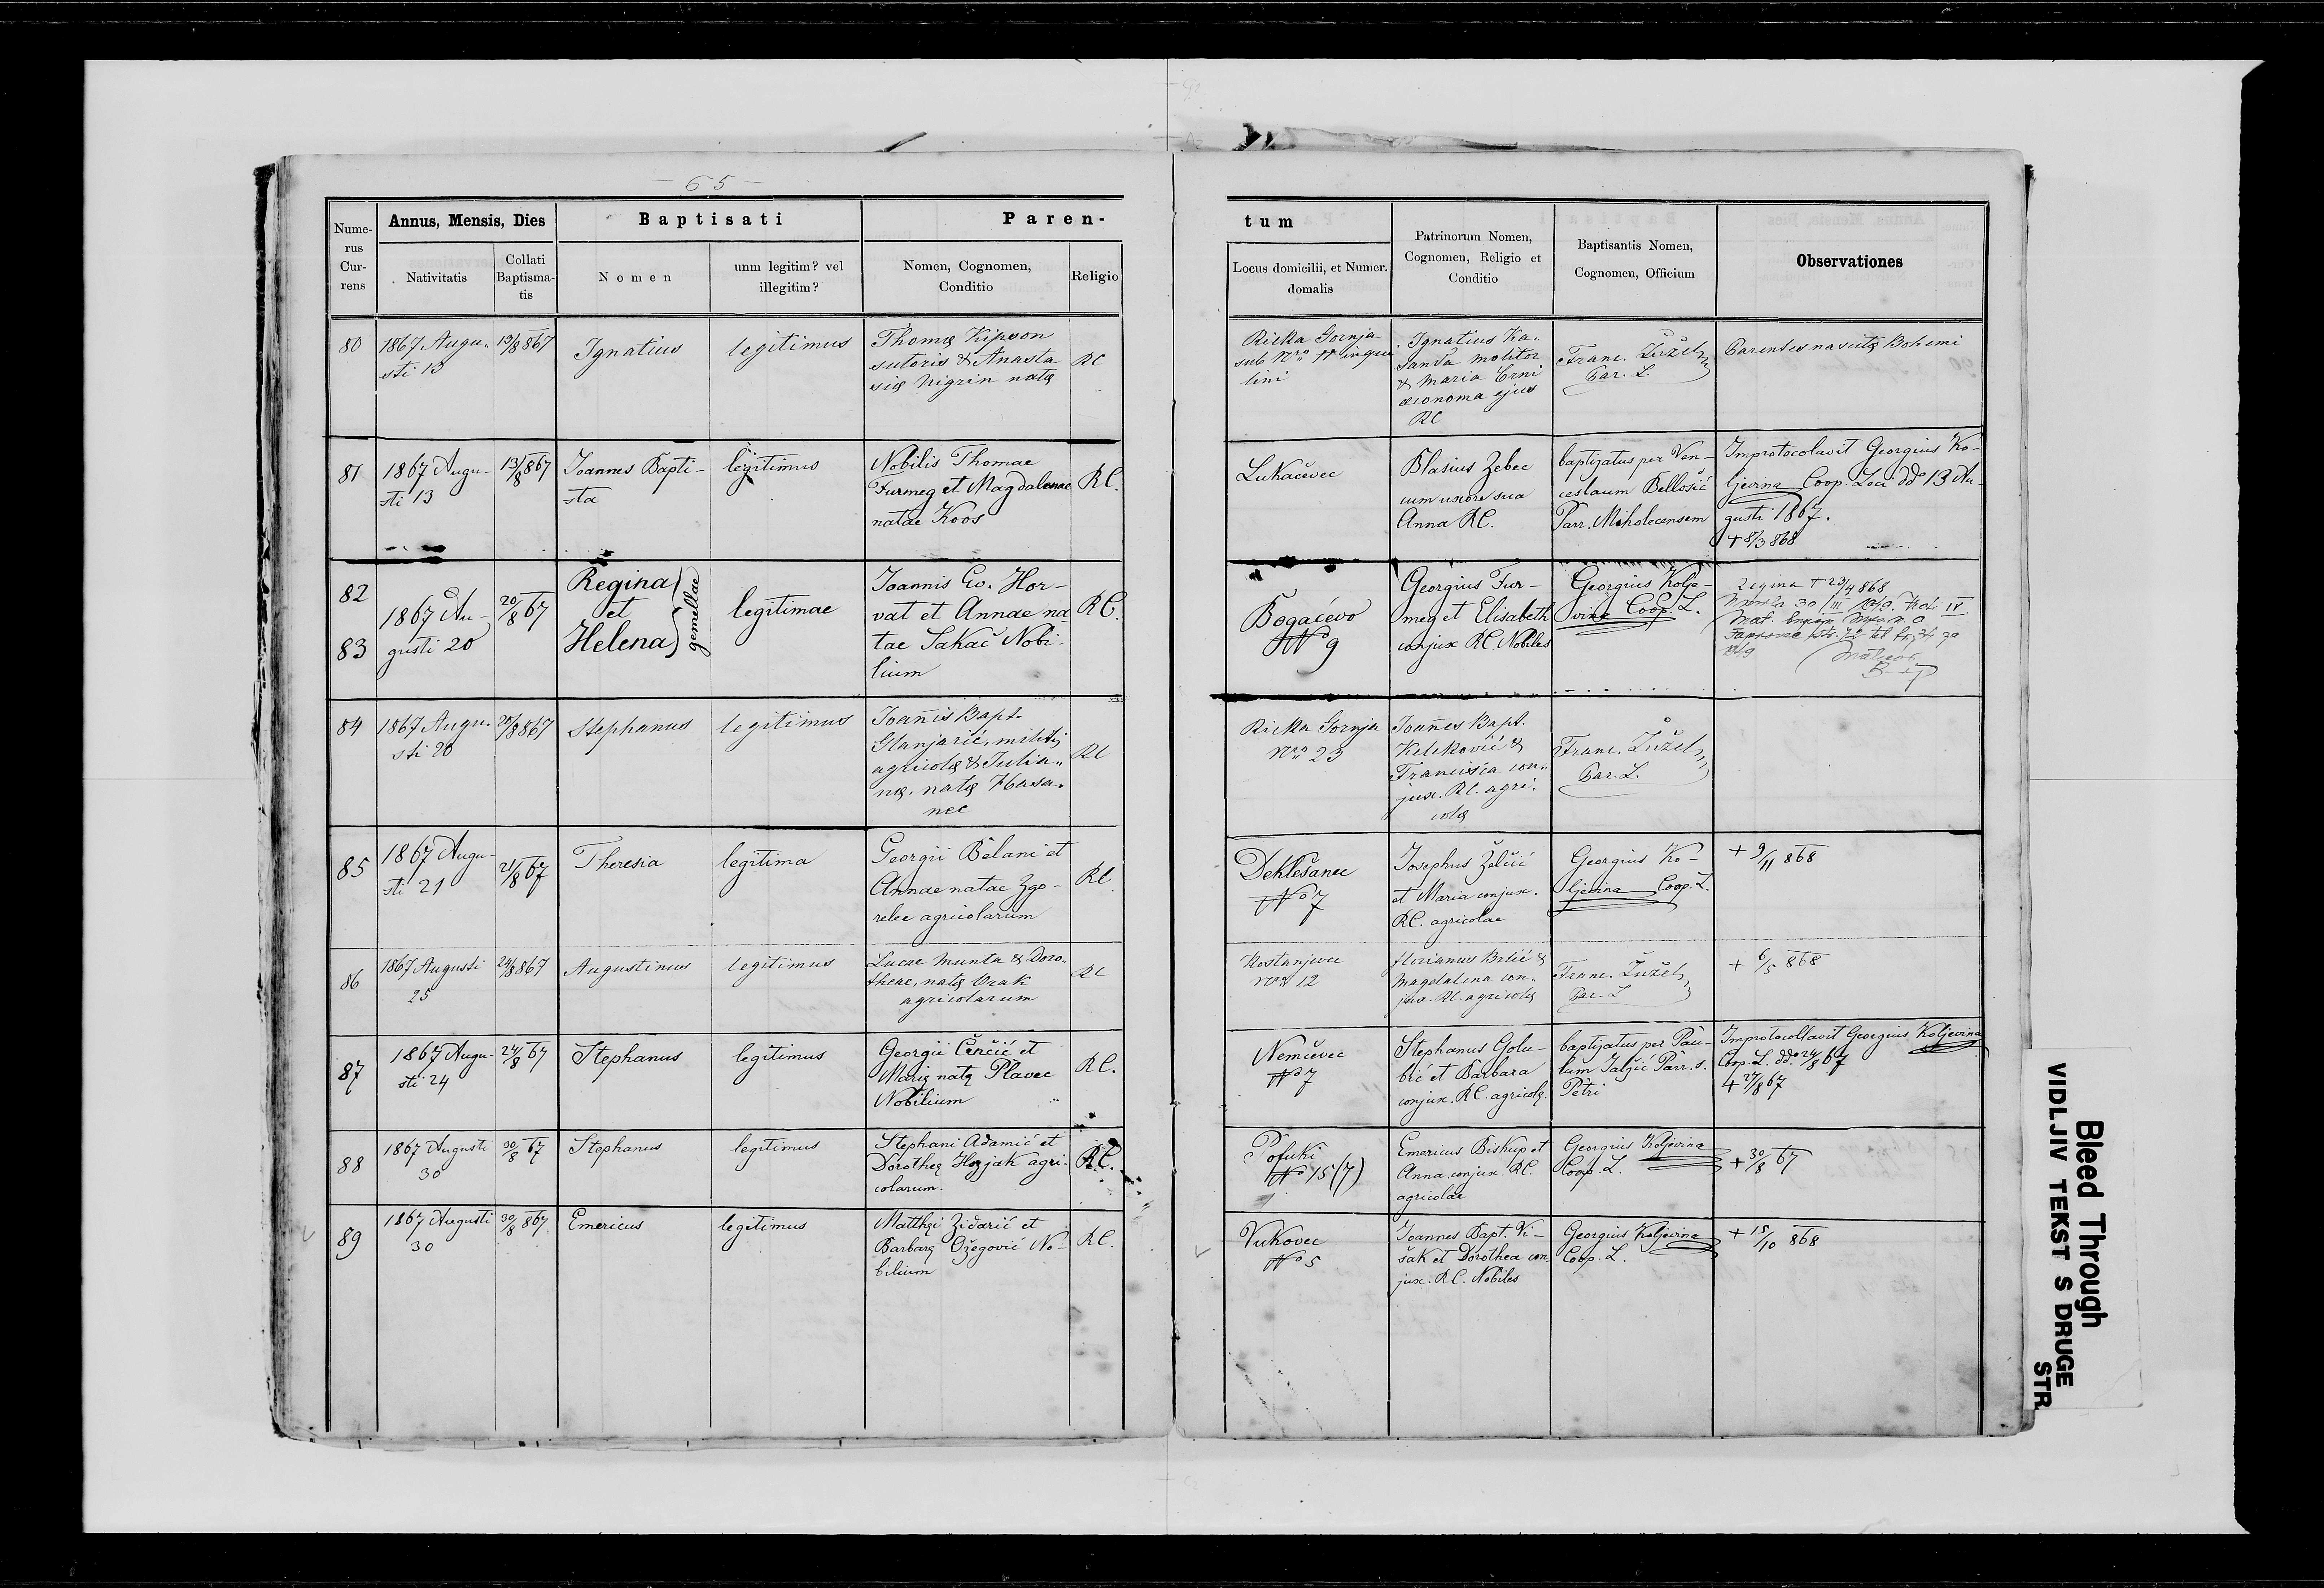 - 65 -
Nume-
rus
Cur-
rens
Annus, Mensis, Dies
Nativitatis
Collati
Baptisma-
tis
Baptisati
Nomen
unm legitim? vel
illegitim?
Paren-
Nomen, Cognomen,
Conditio
Religio
tum
Locus domicilii, et Numer.
domalis
Patrinorum Nomen,
Cognomen, Religio et
Conditio
Baptisantis Nomen,
Cognomen, Officium
Observationes
80
1867 Augu„
sti 13
13/8 867
Ignatius
legitimus
Thomę Kipson
sutoris & Anasta
się Nigrin natę
RC
Rieka Gornja
sub Nro
lini
Ignatius Ka„
sanda molitor
& Maria Crni
œconoma ejus
RC
Franc. Žužel
Par. L.
Parentes nascitę Bohemi
81
1867 Augu-
sti 13
13/8 867
Joannes Bapti-
sta
legitimus
Nobilis Thomae
Furmeg et Magdalenae
natae Koos
RC.
Lukačevec
Blasius Zebec
cum uxore sua
Anna RC.
baptizatus per Ven-
ceslaum Bellošić
Parr. Miholecensem
Improtocolavit Georgius Ko-
ljevina Coop. Loci ddo 13 Au-
gusti 1867.
+ 8/3 868
82
83
1867 Au-
gusti 20
20/8 67
Regina
et
Helena
gemellae
legitimae
Joannis Ev. Hor-
vat et Annae na-
tae Sakač Nobi-
lium
RC.
Bogaćevo
No 9
Georgius Fur-
meg et Elisabeth
conjux RC. Nobiles
Georgius Kolje-
vina Coop. L.
Regina + 23/4 868
84
1867 Augu.
sti 20
20/8 867
Stephanus
legitimus
Joañis Bapt.
Glanjarić, militis
agricolę & Julia„
nę, natę Hasa„
nec
RC
Rieka Gornja
Nro 23
Joañes Bapt.
Keleković &
Francisca con„
jux. RC. agri„
colę
Franc. Žužel
Par. L.
85
1867 Augu-
sti 21
21/8 67
Theresia
legitima
Georgii Belani et
Annae natae Zgo-
relec agricolarum
RC.
Deklešanec
No 7
Josephus Želčić
et Maria conjux.
RC. agricolae
Georgius Ko-
ljevina Coop. L.
+ 9/11 868
86
1867 Augusti
25
24/8 867
Augustinus
legitimus
Lucae Munta & Doro„
theae, natę Orak
agricolarum
RC
Kostanjevec
Nro 12
Florianus Brlić &
Magdalena con„
jux. RC. agricolę
Franc. Žužel
Par. L
+ 6/5 868
87
1867 Augu-
sti 24
24/8 67
Stephanus
legitimus
Georgii Črnčić et
Marię natę Plavec
Nobilium
RC.
Nemčevec
No 7
Stephanus Golu-
bić et Barbara
conjux. RC. agricolę.
baptizatus per Pau-
lum Jalžić Parr. s.
Petri
Improtocollavit Georgius Koljevina
Coop. L. ddo 24/8 67
+ 27/8 67
88
1867 Augusti
30
30/8 67
Stephanus
legitimus
Stephani Adamić et
Dorotheę Horjak agri-
colarum.
RC.
Pofuki
No 15 (7)
Emericus Biskup et
Anna conjux. RC.
agricolae
Georgius Koljevina
Coop. L.
+ 30/8 67
89
1867 Augusti
30
30/8 867
Emericus
legitimus
Matthęi Zidarić et
Barbarę Ožegović No-
bilium
RC.
Vukovec
No 5
Joannes Bapt. Vi-
šak et Dorothea con-
jux. RC. Nobiles
Georgius Koljevina
Coop. L.
+ 15/10 868
Bleed Through
VIDLJIV TEKST S DRUGE
STR